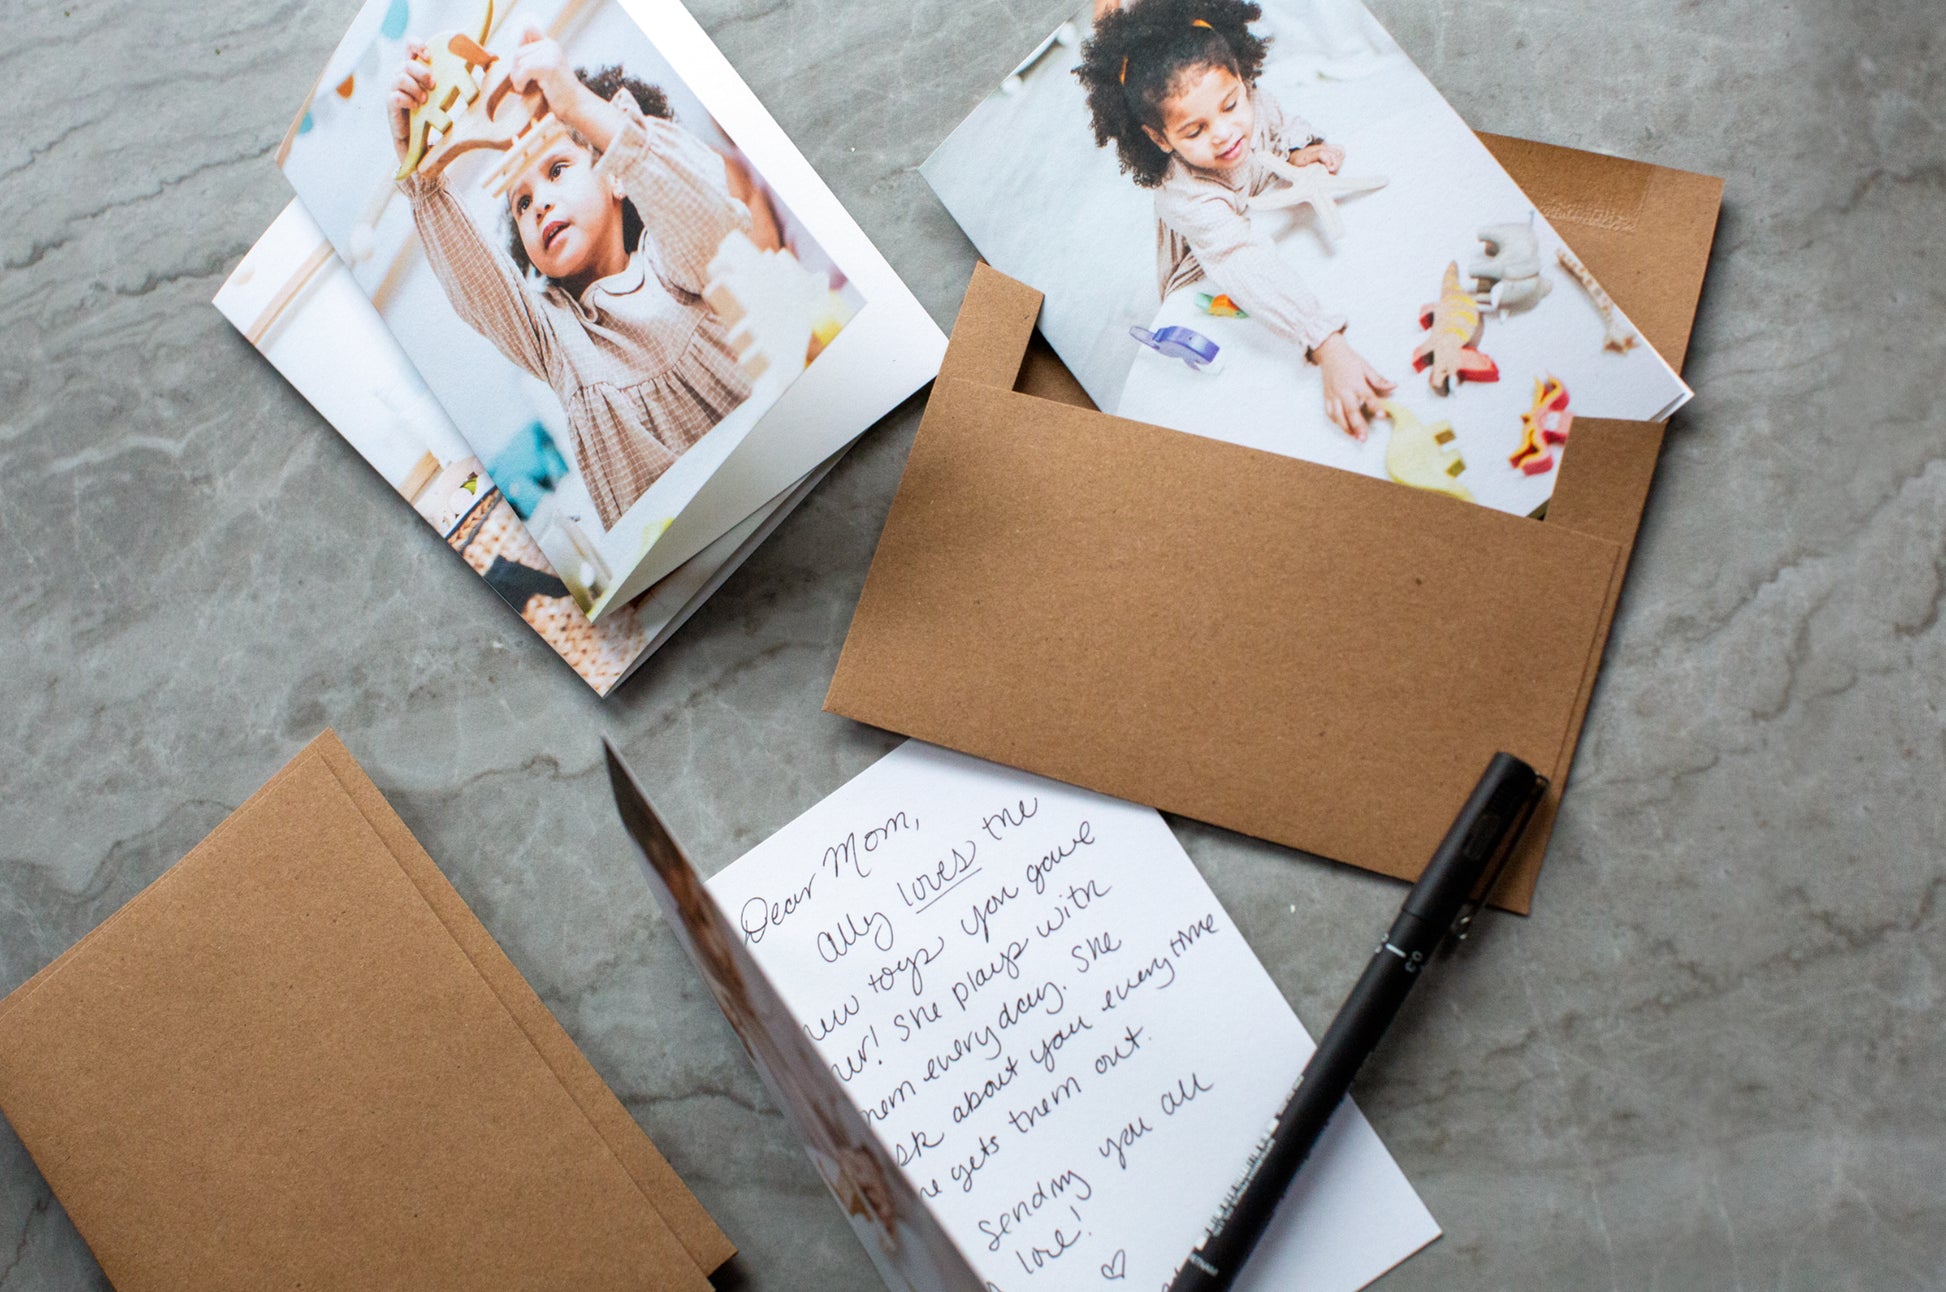 Dear Mom,
Ally loves the
toys you gave
She plays with
everyday. She
about you everytime
gets them out.
Sending you all
love!
0.3